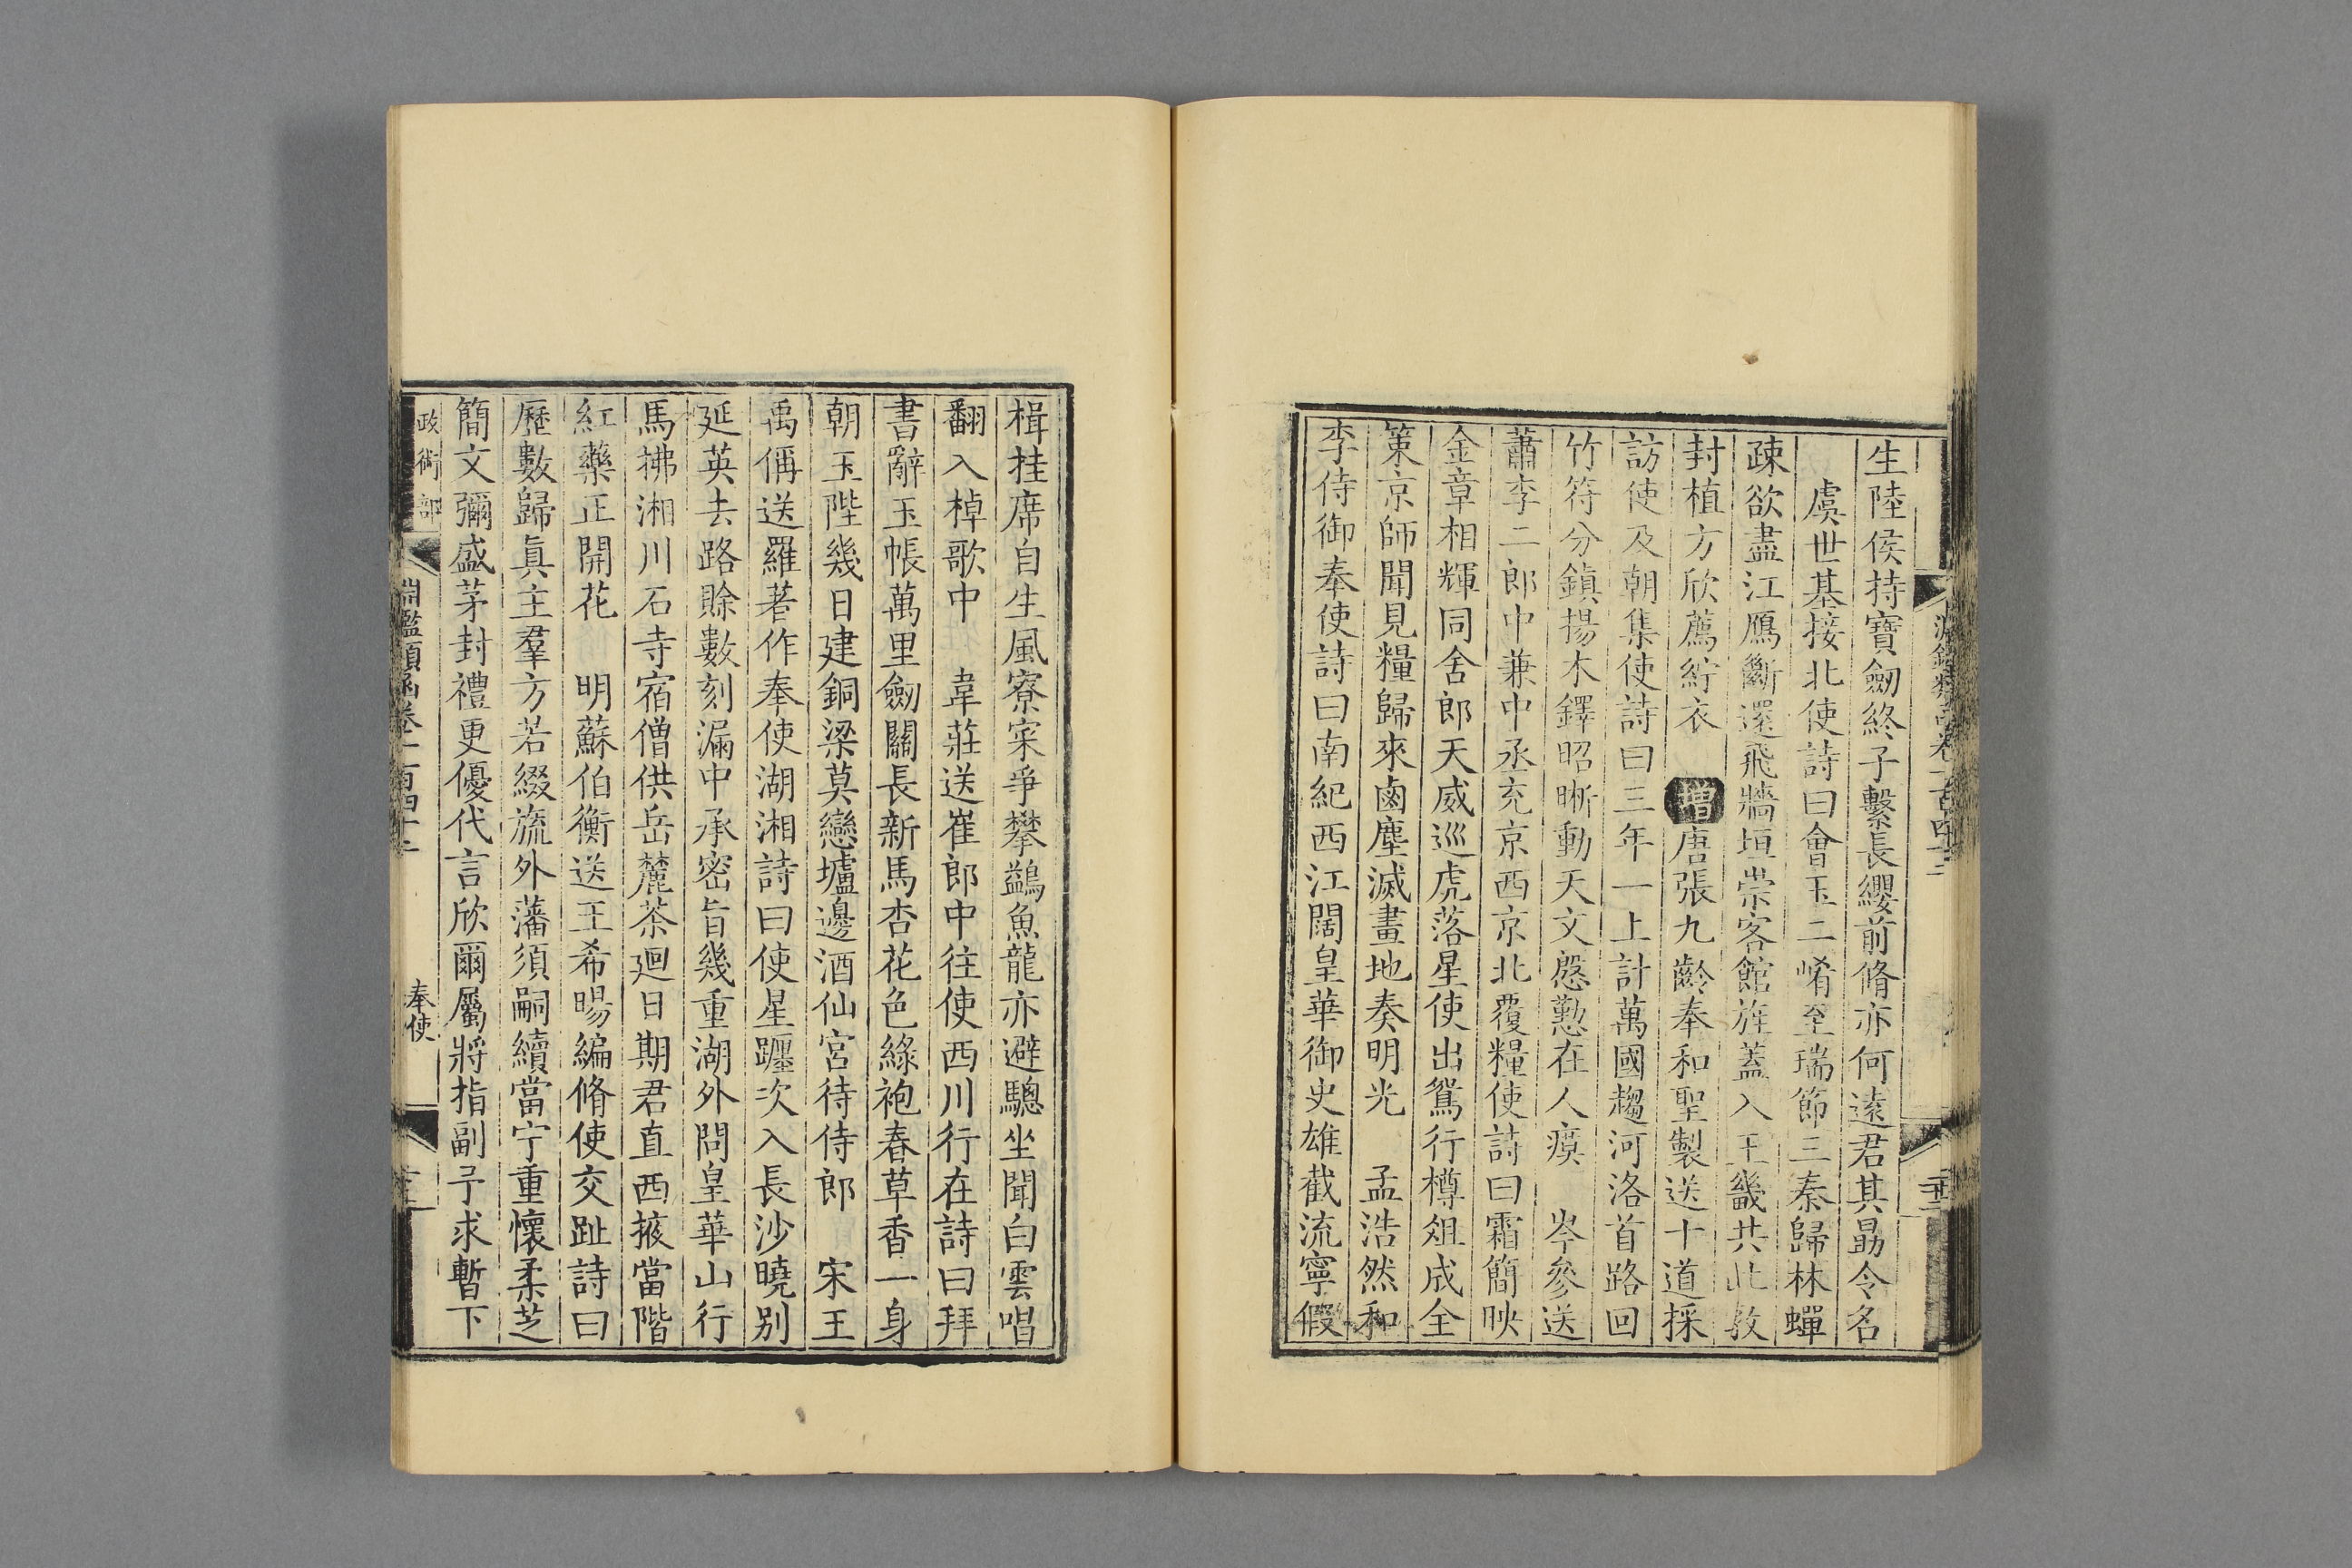 生陸侯持寶劒終子繫長纓前脩亦何遠君其勗令名
虞世基接北使詩曰會玉二崤至瑞節三秦歸林蟬
疎欲盡江鴈斷還飛牆垣崇客館旌蓋入王畿共此敦
封植方欣薦紵衣 增唐張九齡奉和聖製送十道採
訪使及朝集使詩曰三年一上計萬國趨河洛首路回
竹符分鎮揚木鐸昭晣動天文慇懃在人瘼 岑參送
蕭李二郎中兼中丞充京西京北覆糧使詩曰霜簡映
金章相輝同舍郎天威巡虎落星使出鴛行樽俎成全
策京師聞見糧歸來鹵塵滅畫地奏明光 孟浩然和
李侍御奉使詩曰南紀西江闊皇華御史雄截流寧假
楫挂席自生風寮寀爭攀鷁魚龍亦避驄坐聞白雲唱
翻入棹歌中 韋莊送崔郎中往使西川行在詩曰拜
書辭玉帳萬里劒關長新馬杏花色綠袍春草香一身
朝玉陛幾日建銅梁莫戀壚邊酒仙宮待侍郎 宋王
禹偁送羅著作奉使湖湘詩曰使星躔次入長沙曉別
延英去路賒數刻漏中承密旨幾重湖外問皇華山行
馬拂湘川石寺宿僧供岳麓茶迴日期君直西掖當階
紅藥正開花 明蘇伯衡送王希暘編脩使交趾詩曰
歷數歸眞主羣方若綴旒外藩須嗣續當宁重懷柔芝
簡文彌盛茅封禮更優代言欣爾屬將指副予求暫下
政術部 淵鑑類函卷一百四十二 奉使